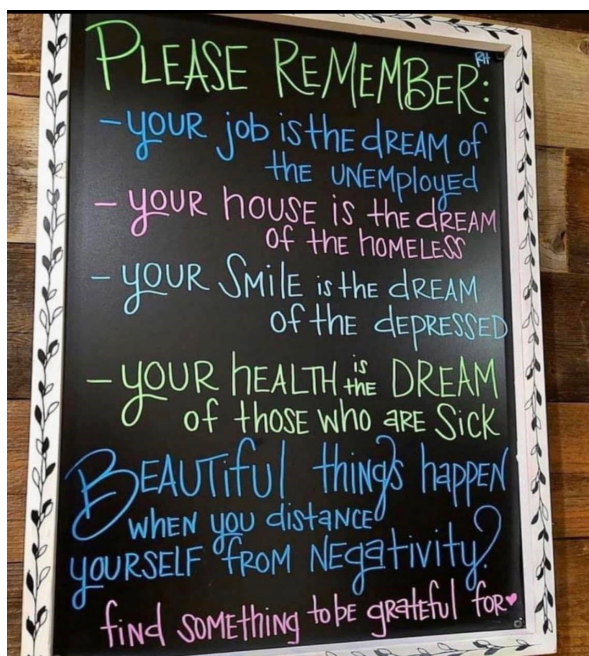 PLEASE REMEMBER:
RH
-YOUR job is the dREAM of
the UNEMployed
- YOUR hOUSE is the dREAM
of the hOMELESS
- YOUR SMilE is the dREAM
of the dEPRESSED
- YOUR hEALTH is the DREAM
of those who ARE Sick
BEAUTiful things happen
WHEN you distance
YOURSELF from NEgativity?
find SOMEthing to be grateful for♥